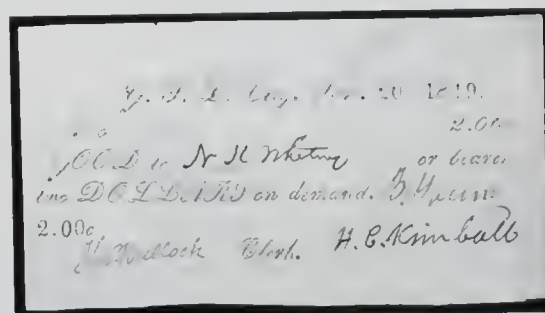 G. S. L. City, 20 1849.
2.00
GOOD to N K Whitney or bearer
two DOLLARS on demand. B. Young
2.00c
T. Bullock Clerk. H. C. Kimball